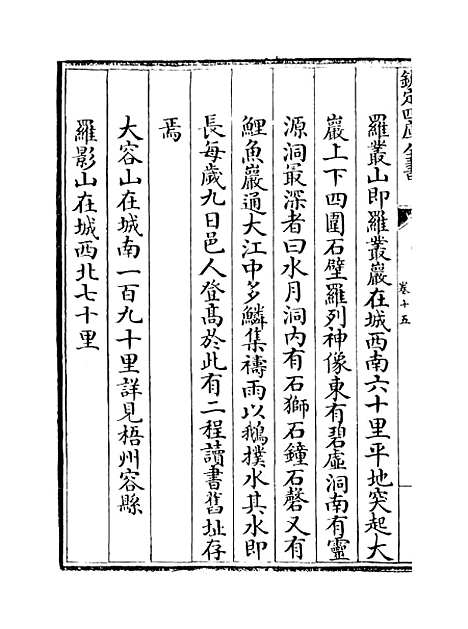 欽定四庫全書
卷十五
羅叢山即羅叢巖在城西南六十里平地突起大
巖上下四圍石壁羅列神像東有碧虛洞南有靈
源洞最深者曰水月洞內有石獅石鐘石磬又有
鯉魚巖通大江中多鱗集禱雨以鵝撲水其水即
長每歲九日邑人登髙於此有二程讀書舊址存
焉
大容山在城南一百九十里詳見梧州容縣
羅影山在城西北七十里